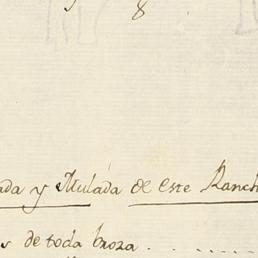 y 8
ada y Mulada de este Ranch
s de toda broza . . . . . .